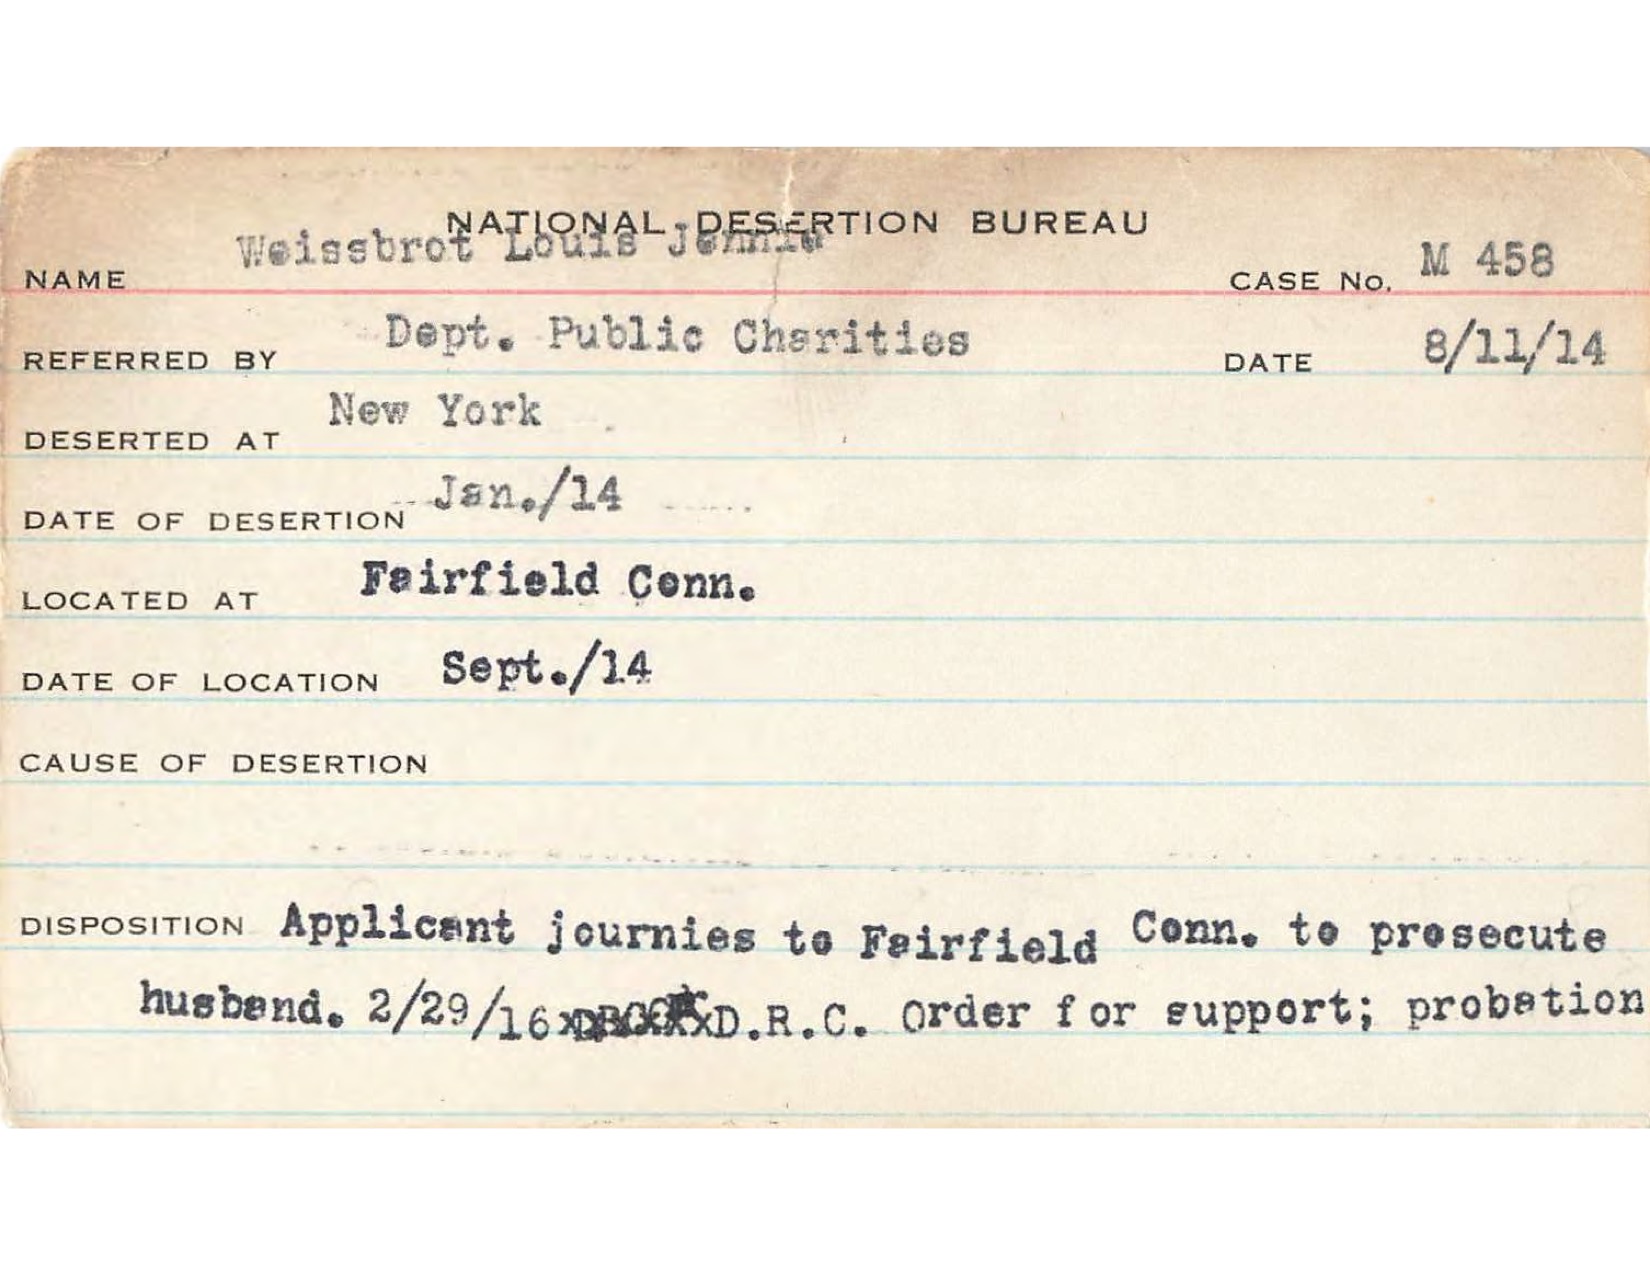 NATIONAL DESERTION BUREAU
NAME Weissbrot Louis Jennie CASE No. M 458
REFERRED BY Dept. Public Charities DATE 8/11/14
DESERTED AT New York
DATE OF DESERTION Jan./14
LOCATED AT Fairfield Conn.
DATE OF LOCATION Sept./14
CAUSE OF DESERTION
DISPOSITION Applicant journies to Fairfield Conn. to prosecute
husband. 2/29/16 D.R.C. Order for support; probation